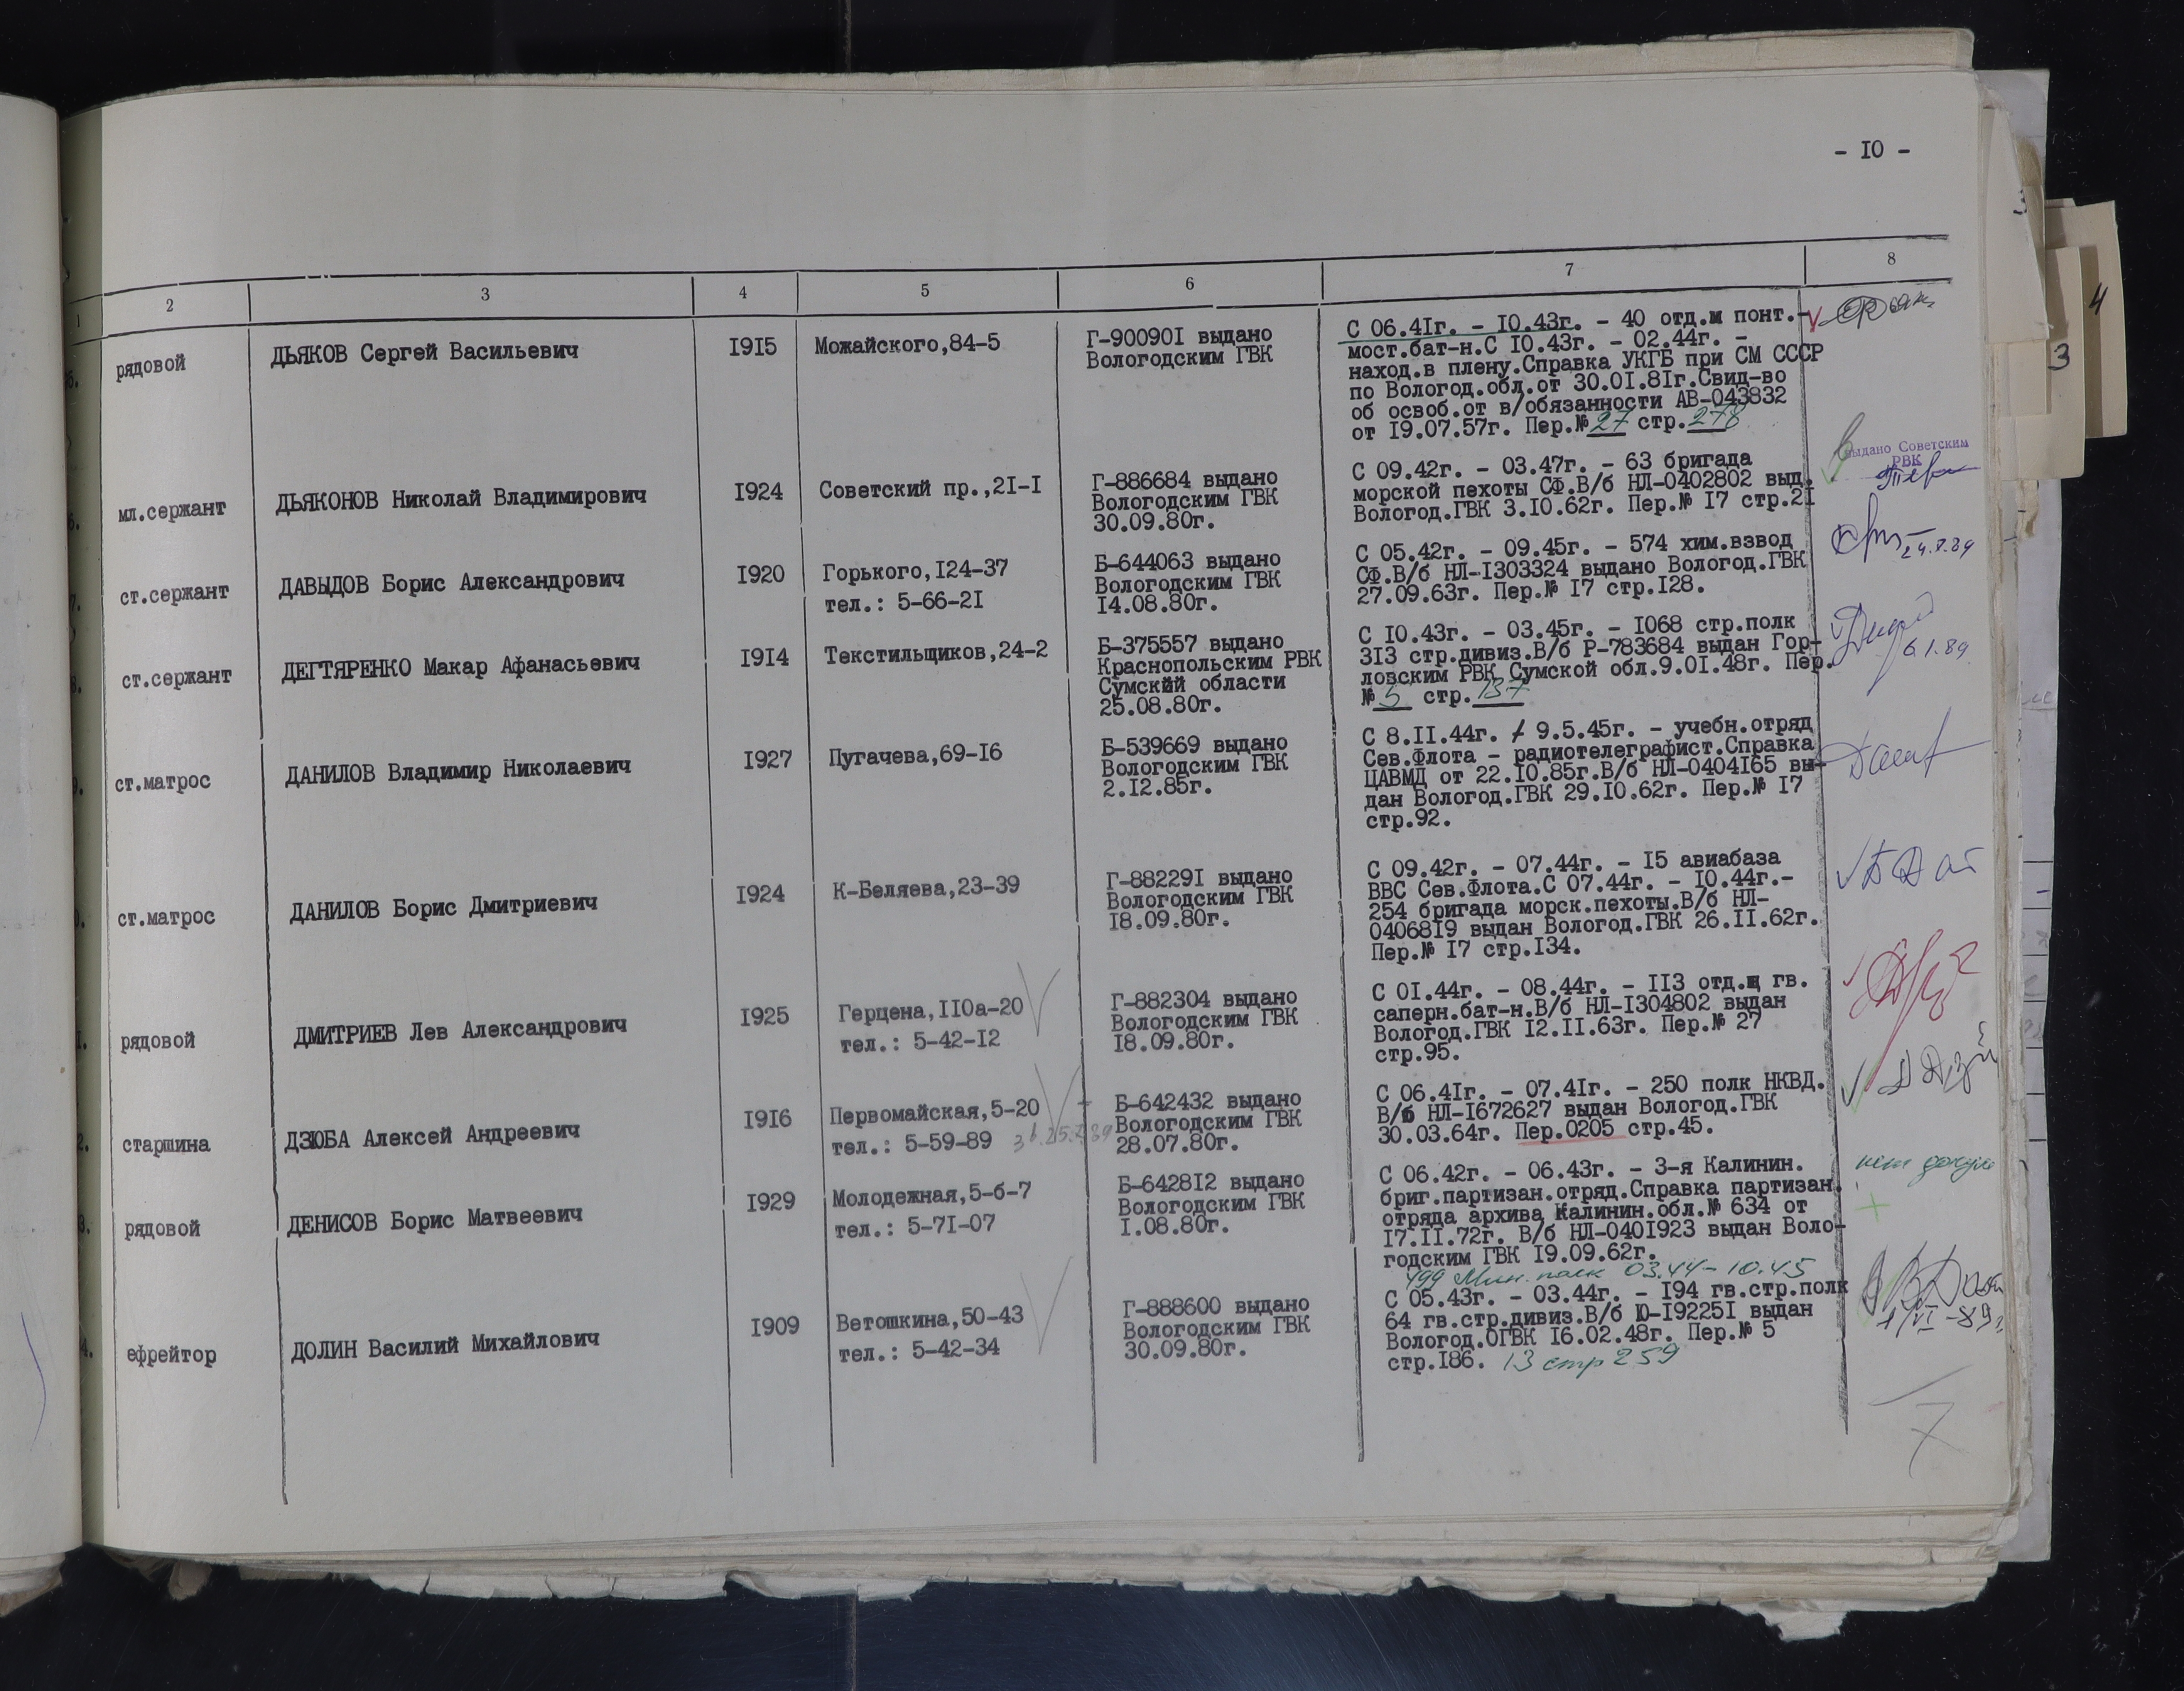 - I0 -
1 2 3 4 5 6 7 8
5.
рядовой
ДЬЯКОВ Сергей Васильевич
I9I5
Можайского,84-5
Г-90090I выдано
Вологодским ГВК
С 06.4Iг. - I0.43г. - 40 отд.м понт.-
мост.бат-н.С I0.43г. - 02.44г. -
наход.в плену.Справка УКГБ при СМ СССР
по Вологод.обл.от 30.0I.8Iг.Свид-во
об освоб.от в/обязанности АВ-043832
от I9.07.57г. Пер.№ 27 стр. 278
6.
мл.сержант
ДЬЯКОНОВ Николай Владимирович
I924
Советский пр.,2I-I
Г-886684 выдано
Вологодским ГВК
30.09.80г.
С 09.42г. - 03.47г. - 63 бригада
морской пехоты СФ.В/б НЛ-0402802 выд.
Вологод.ГВК 3.I0.62г. Пер.№ I7 стр.2I
Выдано Советским
РВК
7.
ст.сержант
ДАВЫДОВ Борис Александрович
I920
Горького,I24-37
тел.: 5-66-2I
Б-644063 выдано
Вологодским ГВК
I4.08.80г.
С 05.42г. - 09.45г. - 574 хим.взвод
СФ.В/б НЛ-I303324 выдано Вологод.ГВК
27.09.63г. Пер.№ I7 стр.I28.
8.
ст.сержант
ДЕГТЯРЕНКО Макар Афанасьевич
I9I4
Текстильщиков,24-2
Б-375557 выдано
Краснопольским РВК
Сумской области
25.08.80г.
С I0.43г. - 03.45г. - I068 стр.полк
3I3 стр.дивиз.В/б Р-783684 выдан Гор-
ловским РВК Сумской обл.9.0I.48г. Пер.
№ 5 стр. 137
6.1.89
9.
ст.матрос
ДАНИЛОВ Владимир Николаевич
I927
Пугачева,69-I6
Б-539669 выдано
Вологодским ГВК
2.I2.85г.
С 8.II.44г. - 9.5.45г. - учебн.отряд
Сев.Флота - радиотелеграфист.Справка
ЦАВМД от 22.I0.85г.В/б НЛ-0404I65 вы-
дан Вологод.ГВК 29.I0.62г. Пер.№ I7
стр.92.
0.
ст.матрос
ДАНИЛОВ Борис Дмитриевич
I924
К-Беляева,23-39
Г-88229I выдано
Вологодским ГВК
I8.09.80г.
С 09.42г. - 07.44г. - I5 авиабаза
ВВС Сев.Флота.С 07.44г. - I0.44г.-
254 бригада морск.пехоты.В/б НЛ-
04068I9 выдан Вологод.ГВК 26.II.62г.
Пер.№ I7 стр.I34.
1.
рядовой
ДМИТРИЕВ Лев Александрович
I925
Герцена,II0а-20
тел.: 5-42-I2
Г-882304 выдано
Вологодским ГВК
I8.09.80г.
С 0I.44г. - 08.44г. - II3 отд. гв.
саперн.бат-н.В/б НЛ-I304802 выдан
Вологод.ГВК I2.II.63г. Пер.№ 27
стр.95.
2.
старшина
ДЗЮБА Алексей Андреевич
I9I6
Первомайская,5-20
тел.: 5-59-89
Б-642432 выдано
Вологодским ГВК
28.07.80г.
С 06.4Iг. - 07.4Iг. - 250 полк НКВД.
В/б НЛ-I672627 выдан Вологод.ГВК
30.03.64г. Пер.0205 стр.45.
3.
рядовой
ДЕНИСОВ Борис Матвеевич
I929
Молодежная,5-б-7
тел.: 5-7I-07
Б-6428I2 выдано
Вологодским ГВК
I.08.80г.
С 06.42г. - 06.43г. - 3-я Калинин.
бриг.партизан.отряд.Справка партизан.
отряда архива Калинин.обл.№ 634 от
I7.II.72г. В/б НЛ-040I923 выдан Воло-
годским ГВК I9.09.62г.
499 Мин. полк 03.44-10.45
4.
ефрейтор
ДОЛИН Василий Михайлович
I909
Ветошкина,50-43
тел.: 5-42-34
Г-888600 выдано
Вологодским ГВК
30.09.80г.
С 05.43г. - 03.44г. - I94 гв.стр.полк
64 гв.стр.дивиз.В/б Ю-I9225I выдан
Вологод.ОГВК I6.02.48г. Пер.№ 5
стр.I86. 13 стр 259
7
3
4